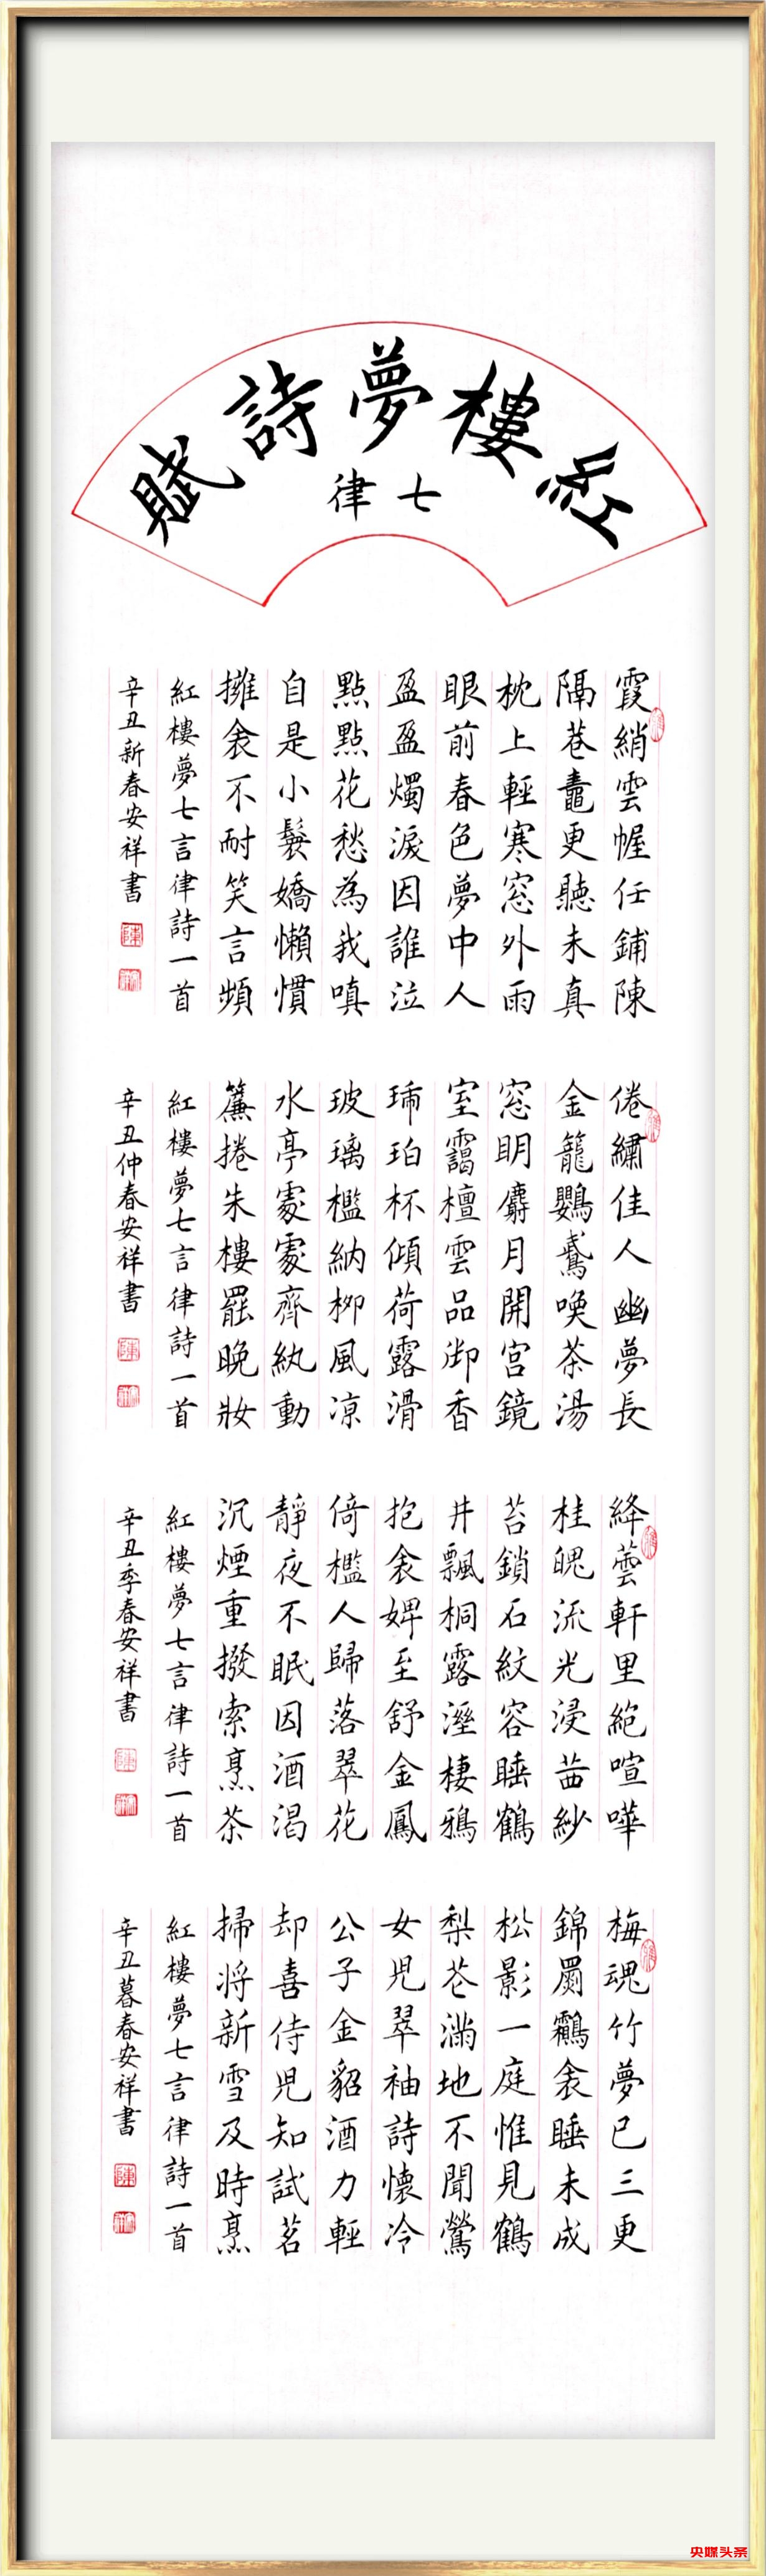 紅樓夢詩賦
七律
霞綃雲幄任鋪陳
隔巷蟇更聽未真
枕上輕寒窓外雨
眼前春色夢中人
盈盈燭淚因誰泣
點點花愁為我嗔
自是小鬟嬌懶慣
擁衾不耐笑言頻
紅樓夢七言律詩一首
辛丑新春安祥書
倦繡佳人幽夢長
金籠鸚鵡喚茶湯
窓明麝月開宮鏡
室靄檀雲品御香
琥珀杯傾荷露滑
玻璃檻納柳風凉
水亭處處齊紈動
簾捲朱樓罷晚妝
紅樓夢七言律詩一首
辛丑仲春安祥書
絳蕓軒里絕喧嘩
桂魄流光浸茜紗
苔鎖石紋容睡鶴
井飄桐露溼棲鴉
抱衾婢至舒金鳳
倚檻人歸落翠花
靜夜不眠因酒渴
沉煙重撥索烹茶
紅樓夢七言律詩一首
辛丑季春安祥書
梅魂竹夢已三更
錦罽鸘衾睡未成
松影一庭惟見鶴
梨花滿地不聞鶯
女兒翠袖詩懷冷
公子金貂酒力輕
却喜侍兒知試茗
掃將新雪及時烹
紅樓夢七言律詩一首
辛丑暮春安祥書
央媒头条